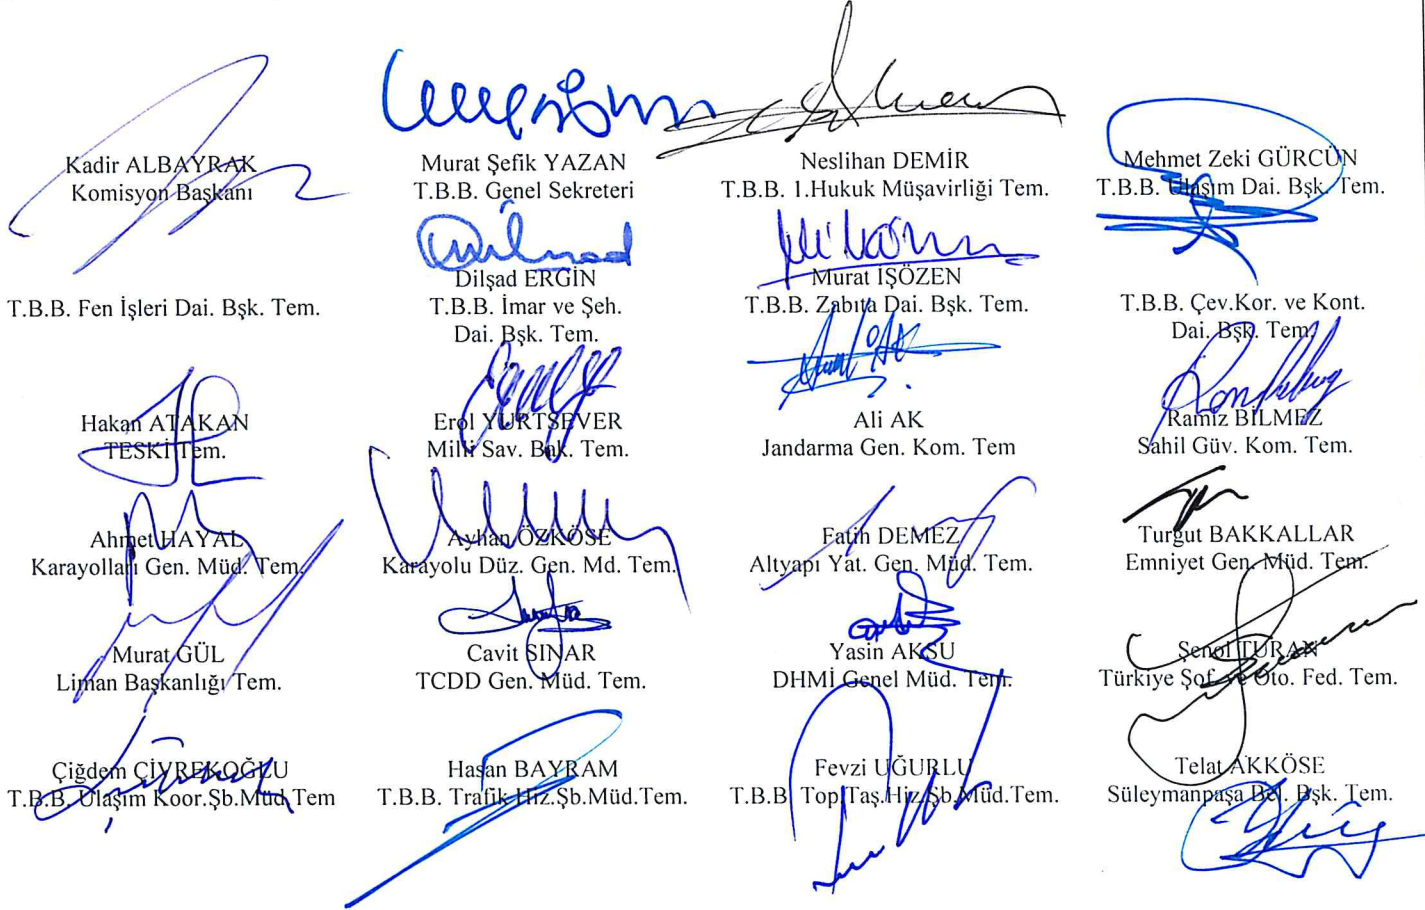 Kadir ALBAYRAK
Komisyon Başkanı
Murat Şefik YAZAN
T.B.B. Genel Sekreteri
Neslihan DEMİR
T.B.B. 1.Hukuk Müşavirliği Tem.
Mehmet Zeki GÜRCÜN
T.B.B. Ulaşım Dai. Bşk. Tem.
T.B.B. Fen İşleri Dai. Bşk. Tem.
Dilşad ERGİN
T.B.B. İmar ve Şeh.
Dai. Bşk. Tem.
Murat IŞÖZEN
T.B.B. Zabıta Dai. Bşk. Tem.
T.B.B. Çev.Kor. ve Kont.
Dai. Bşk. Tem.
Hakan ATAKAN
TESKİ Tem.
Erol YURTSEVER
Milli Sav. Bak. Tem.
Ali AK
Jandarma Gen. Kom. Tem
Ramiz BİLMEZ
Sahil Güv. Kom. Tem.
Ahmet HAYAL
Karayolları Gen. Müd. Tem.
Ayhan ÖZKÖSE
Karayolu Düz. Gen. Md. Tem.
Fatih DEMEZ
Altyapı Yat. Gen. Müd. Tem.
Turgut BAKKALLAR
Emniyet Gen. Müd. Tem.
Murat GÜL
Liman Başkanlığı Tem.
Cavit SINAR
TCDD Gen. Müd. Tem.
Yasin AKSU
DHMİ Genel Müd. Tem.
Şenol TURAN
Türkiye Şof. ve Oto. Fed. Tem.
Çiğdem ÇİVREKOĞLU
T.B.B. Ulaşım Koor.Şb.Müd.Tem
Hasan BAYRAM
T.B.B. Trafik Hiz.Şb.Müd.Tem.
Fevzi UĞURLU
T.B.B Top.Taş.Hiz.Şb.Müd.Tem.
Telat AKKÖSE
Süleymanpaşa Bel. Bşk. Tem.